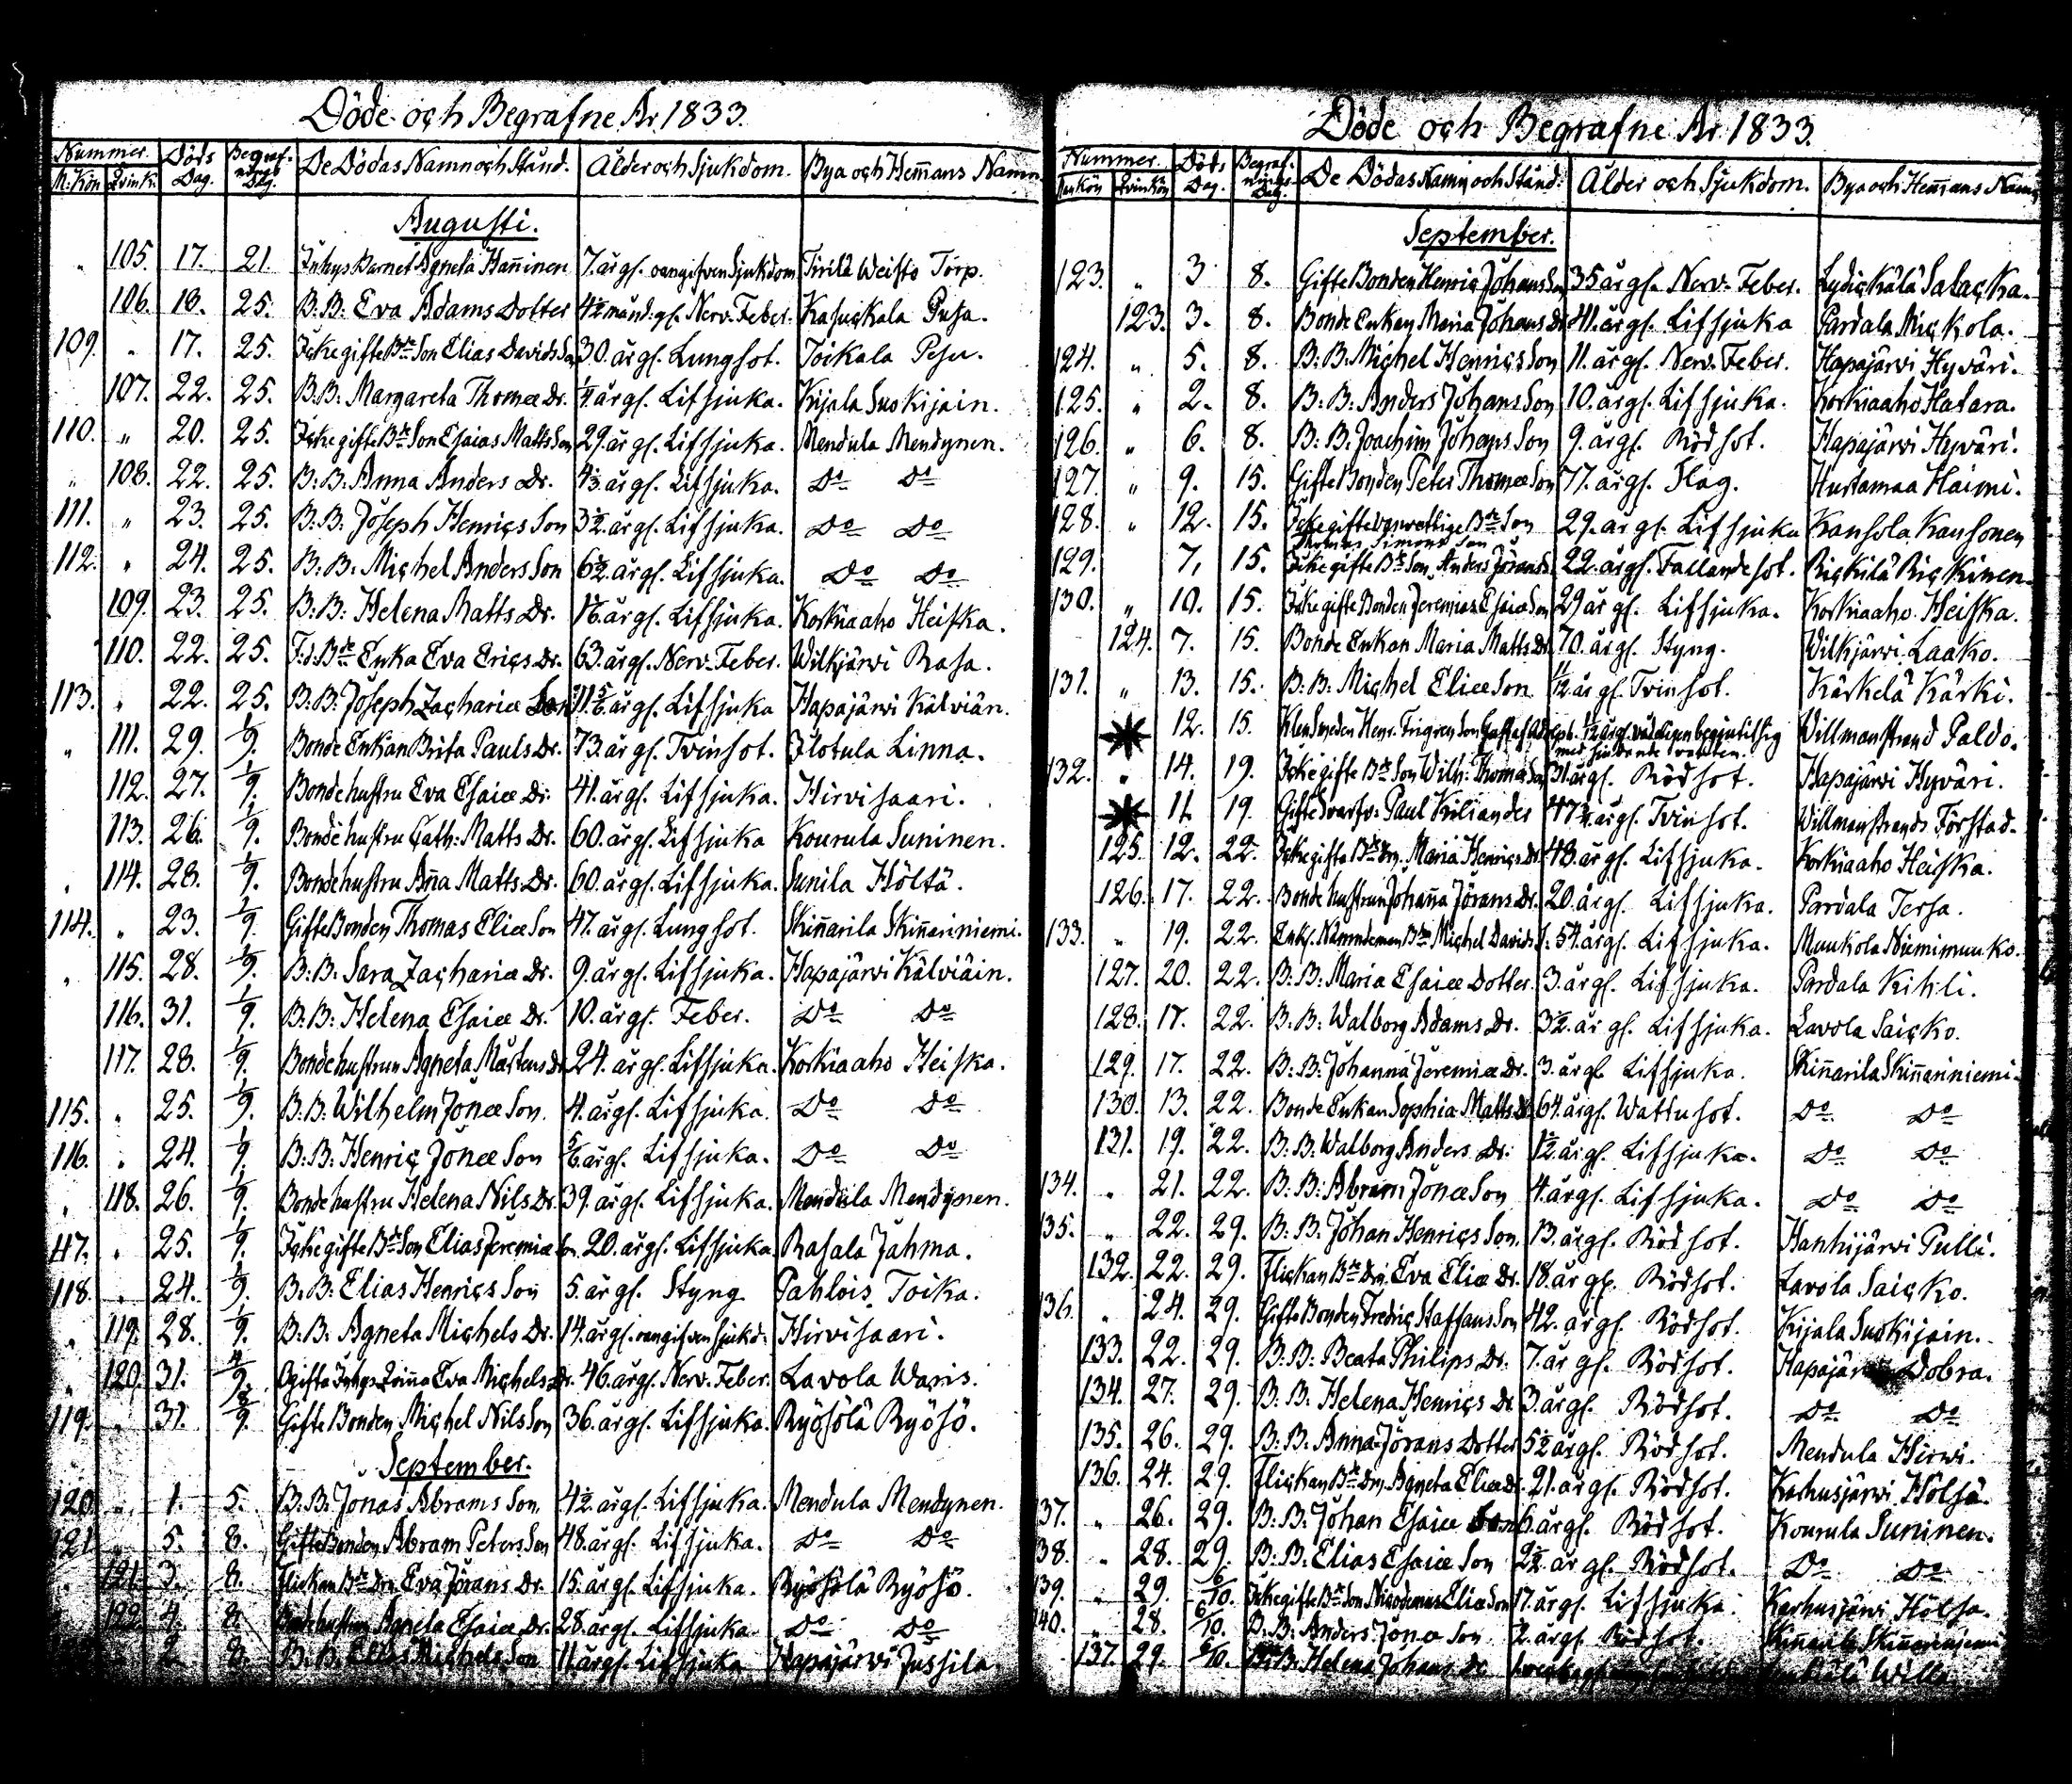 Döde och Begrafne År 1833.
Nummer. Döds Dag. Begrafnings Dag. De Dödas Namn och Stånd. Ålder och Sjukdom. Bya och Hem̄ans Namn
M: Kön Qvin K:
Augusti.
105. 17. 21. Inhys Barnet Agneta Han̄inen 7. årgl. oangifven Sjukdom Tirilä Weisto Torp.
106. 18. 25. B: B: Eva Adams Dotter 4½ månd: gl. Nerv. Feber. Kasuckala Pusa.
109. " 17. 25. Icke gifte Bde Son Elias Davids Son 30. årgl. Lungsot. Toikala Pesu.
107. 22. 25. B: B: Margareta Thomæ Dr. ¼ årgl. Lifsjuka. Kijala Suokijain.
110. " 20. 25. Icke gifte Bde Son Esaias Matts Son 29. årgl. Lifsjuka. Mendula Mendynen.
" 108. 22. 25. B: B: Anna Anders Dr. 4⅓ årgl. Lifsjuka. Do Do
111. " 23. 25. B: B: Joseph Henrics Son 3½ årgl. Lifsjuka. Do Do
112. " 24. 25. B: B: Michel Anders Son 6½ årgl. Lifsjuka. Do Do
109. 23. 25. B: B: Helena Matts Dr. årgl. Lifsjuka. Korkiaaho Heiska.
110. 22. 25. F.d. Bde Enka Eva Erics Dr. 63. årgl. Nerv. Feber. Wilkjärvi Rasa.
113. " 22. 25. B: B: Joseph Zachariæ Son 11⅚ årgl. Lifsjuka Hapajärvi Kälviän.
" 111. 29. 1/9. Bonde Enkan Brita Pauls Dr. 73. årgl. Tvinsot. Ilotula Linna.
112. 27. 1/9. Bondehustru Eva Esaiæ Dr. 41. årgl. Lifsjuka. Hirvisaari.
113. 26. 1/9. Bondehustru Cath: Matts Dr. 60. årgl. Lifsjuka. Kourula Suninen.
" 114. 28. 1/9. Bondehustru An̄a Matts Dr. 60. årgl. Lifsjuka. Sunila Höltä.
114. " 23. 1/9. Gifte Bonden Thomas Eliæ Son 47. årgl. Lungsot. Skin̄arila Skin̄ariniemi.
" 115. 28. 1/9. B: B: Sara Zachariæ Dr. 9. årgl. Lifsjuka. Hapajärvi Kälviäin.
116. 31. 1/9. B: B: Helena Esaiæ Dr. 10. årgl. Feber. Do Do
117. 28. 1/9. Bondehustrun Agneta Mårtens Dr 24. årgl. Lifsjuka. Korkiaaho Heiska.
115. " 25. 1/9. B: B: Wilhelm Jonæ Son. 4. årgl. Lifsjuka. Do Do
116. " 24. 1/9. B: B: Henric Jonæ Son ⅚ årgl. Lifsjuka. Do Do
" 118. 26. 1/9. Bondehustru Helena Nils Dr. 39. årgl. Lifsjuka. Mendula Mendynen.
117. " 25. 1/9. Icke gifte Bde Son Elias Jeremiæ Son. 20. årgl. Lifsjuka. Rasala Jahma.
118. " 24. 1/9. B: B: Elias Henrics Son 5. årgl. Styng Pahlois Toika.
" 119. 28. 1/9. B: B: Agneta Michels Dr. 14. årgl. oangifven sjukd: Hirvisaari.
" 120. 31. 4/9. Ogifta Inhys Qvin̄a Eva Michels Dr. 46. årgl. Nerv. Feber. Lavola Waris.
119. " 31. 8/9. Gifte Bonden Michel Nils Son 36. årgl. Lifsjuka. Ryösölä Ryösö.
September.
120. " 1. 5. B: B: Jonas Abrams Son 4½ årgl. Lifsjuka. Mendula Mendynen.
121. " 5. 8. Gifte Bonden Abram Peters Son 48. årgl. Lifsjuka. Do Do
121. 3. 8. Flickan Bde Dr. Eva Jörans Dr. 15. årgl. Lifsjuka. Ryösölä Ryösö.
122. 4. 8. Bondehustrun Agneta Esaiæ Dr. 28. årgl. Lifsjuka Do Do
" 2. 8. B: B: Elias Michels Son 11. årgl. Lifsjuka Hapajärvi Jussila
Döde och Begrafne År 1833.
Nummer. Döds Dag. Begrafnings Dag. De Dödas Namn och Stånd. Ålder och Sjukdom. Bya och Hem̄ans Namn
Man Kön Qvin Kön
September.
123. " 3 8. Gifte Bonden Henric Johans Son 35 årgl. Nerv. Feber. Lydickälä Salacka.
123. 3. 8. Bonde Enkan Maria Johans Dr 41. årgl. Lifsjuka Pardala Mickola.
124. " 5. 8. B: B: Michel Henrics Son 11. årgl. Nerv. Feber. Hapajärvi Hyväri.
125. " 2. 8. B: B: Anders Johans Son 10. årgl. Lifsjuka. Korkiaaho Hatara.
126. " 6. 8. B: B: Joachim Johans Son 9. årgl. Rödsot. Hapajärvi Hyväri.
127. " 9. 15. Gifte Bonden Peter Thomæ Son 77. årgl. Slag. Hurtamaa Haimi.
128. " 12. 15. Icke gifte vanvettige Bde Son Thomas Simons Son 29. årgl. Lifsjuka Kansola Kansonen
129. 7. 15. Icke gifte Bde Son Anders Jörans S. 22. årgl. Fallandesot. Rickilä Rickinen.
130. " 10. 15. Icke gifte Bonden Jeremias Esaiæ Son 29 årgl. Lifsjuka. Korkiaaho Heiska.
124. 7. 15. Bonde Enkan Maria Matts Dr. 70. årgl. Styng. Wilkjärvi Laako.
131. " 13. 15. B: B: Michel Eliæ Son årgl. Tvinsot. Kärkelä Kärki.
12. 15. Henr. Frigren Son med Willmanstrand Paldo.
132. " 14. 19. Icke gifte Bde Son Wilh: Thomæ Son 31. årgl. Rödsot. Hapajärvi Hyväri.
11. 19. Gifte Paul Kiliander 47 årgl. Tvinsot. Willmanstrands Förstad.
125. 12. 22. Icke gifta Bde Dr. Maria Henrics Dr. 48. årgl. Lifsjuka. Korkiaaho Heiska.
126. 17. 22. Bonde hustrun Johan̄a Jörans Dr. 20. årgl. Lifsjuka. Pardala Tersa.
133. " 19. 22. Enkl. Nämndeman Bdn Michel Davids S: 54. årgl. Lifsjuka. Muukola Niemimuuko.
127. 20. 22. B: B: Maria Esaiæ Dotter 3. årgl. Lifsjuka. Pardala Kihli.
128. 17. 22. B: B: Walborg Adams Dr. 3½ årgl. Lifsjuka. Lavola Saicko.
129. 17. 22. B: B: Johanna Jeremiæ Dr. 3. årgl. Lifsjuka. Skin̄arila Skin̄ariniemi.
130. 13. 22. Bonde Enkan Sophia Matts Dr 64. årgl. Wattusot. Do Do
131. 19. 22. B: B: Walborg Anders Dr. 1½ årgl. Lifsjuka. Do Do
134. " 21. 22. B: B: Abram Jonæ Son 4. årgl. Lifsjuka. Do Do
135. " 22. 29. B: B: Johan Henrics Son. 13. årgl. Rödsot. Hanhijärvi Pulli.
132. 22. 29. Flickan Bde Dr. Eva Eliæ Dr. 18. årgl. Rödsot. Lavola Saicko.
136. " 24. 29. Gifte Bonden Fredric Staffans Son 42. årgl. Rödsot. Kijala Suokijain.
133. 22. 29. B: B: Beata Philips Dr. 7. årgl. Rödsot. Hapajär Dobra.
134. 27. 29. B: B: Helena Henrics Dr 3. årgl. Rödsot. Do Do
135. 26. 29. B: B: Anna Jörans Dotter 5½ årgl. Rödsot. Mendula Hirvi.
136. 24. 29. Flickan Bde Dr. Agneta Eliæ Dr. 21. årgl. Rödsot. Karhusjärvi Hölsä.
37. " 26. 29. B: B: Johan Esaiæ Son 6 årgl. Rödsot. Kourula Suninen.
38. " 28. 29. B: B: Elias Esaiæ Son 2½ årgl. Rödsot. Do Do
139. " 29. 6/10. Icke gifte Bde Son Nicodemus Eliæ Son 17. årgl. Lifsjuka. Karhusjärvi Hölsä.
140. " 28. 6/10. B: B: Anders Jonæ Son 2. årgl. Rödsot. Skin̄arila Skin̄ariniemi
137. 29. 6/10. B: B: Helena Johans Dr Willa.